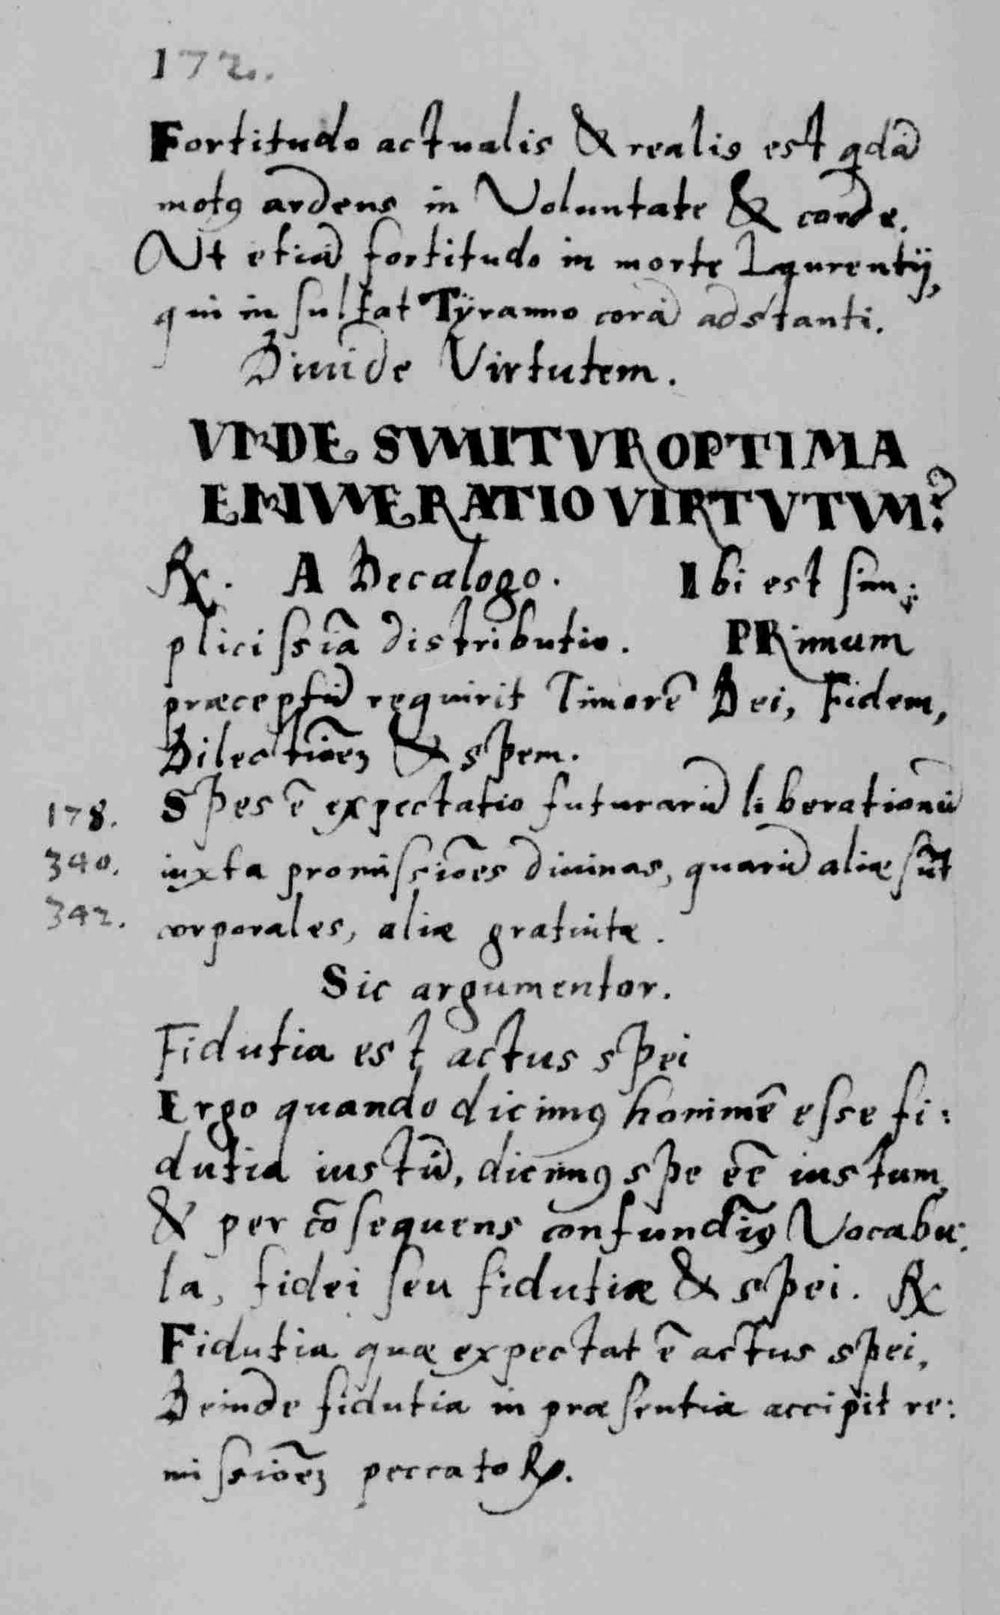 172.
Fortitudo actualis & realis est qdā
motꝯ ardens in Voluntate & corde.
Ut etiā fortitudo in morte Laurentij,
qui insultat Tÿranno corā adstanti.
Diuide Virtutem.
VNDE SVMITVR OPTIMA
ENVMERATIO VIRTVTVM?
℟. A Decalogo. Ibi est sim:
plicissīa distributio. PRimum
præceptū requirit Timorē Dei, Fidem,
Dilectiōeꝫ & spem.
Spes ē expectatio futurarū liberationū
178.
iuxta promissiōes diuinas, quarū aliæ sūt
340.
corporales, aliæ gratuitæ.
342.
Sic argumentor.
Fidutia est actus spei
Ergo quando dicimꝯ hominē esse fi:
dutia iustū, dicimꝯ spe eē iustum,
& per cōsequens confundīꝯ Vocabu:
la, fidei seu fidutiæ & spei. ℟
Fidutia quæ expectat ē actus spei,
Deinde fidutia in præsentia accipit re:
missiōeꝫ peccatoꝝ.